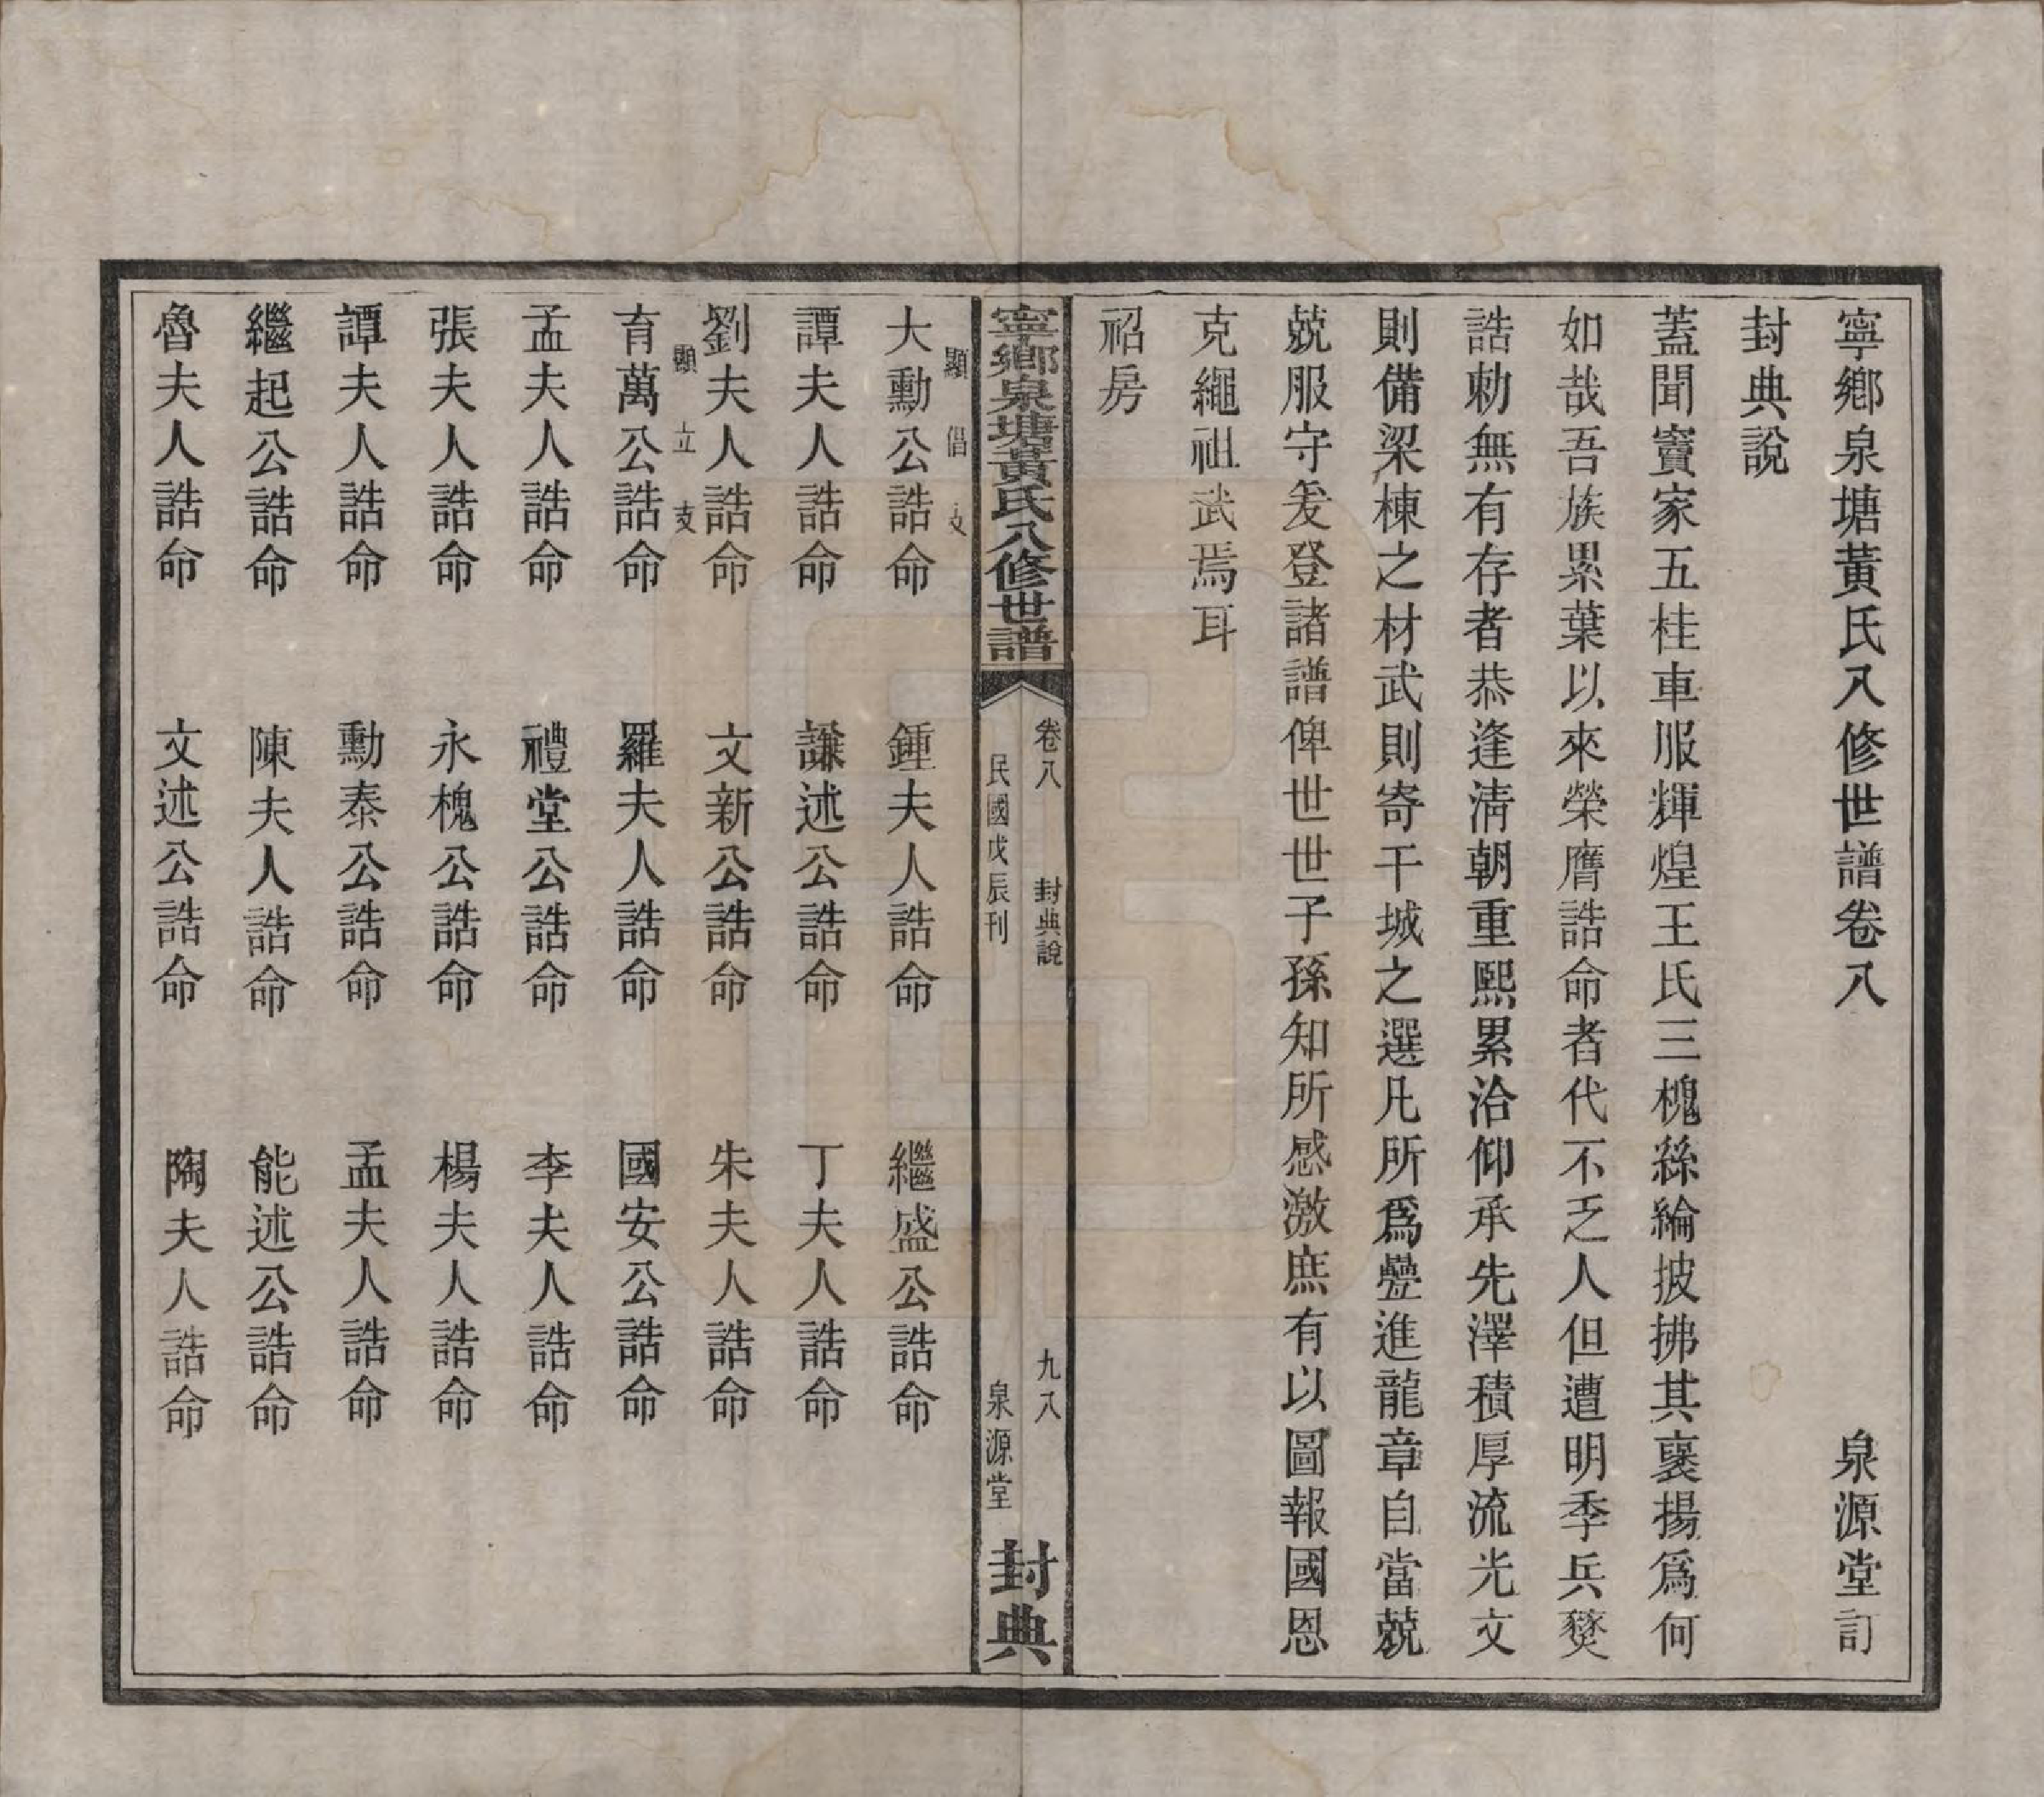 寧鄉泉塘黃氏八修世譜卷八 泉源堂訂
封典說
蓋聞竇家五桂車服輝煌王氏三槐絲綸披拂其褒揚爲何
如哉吾族累葉以來榮膺誥命者代不乏人但遭明季兵燹
誥勅無有存者恭逢淸朝重熙累洽仰承先澤積厚流光文
則備梁棟之材武則寄干城之選凡所爲疊進龍章自當兢
兢服守爰登諸譜俾世世子孫知所感激庶有以圖報國恩
克繩祖武焉耳
祒房
寧鄉泉塘黃氏八修世譜 卷八 封典說 九八
民國戊辰刊 泉源堂 封典
顯倡支
大勳公誥命 鍾夫人誥命 繼盛公誥命
譚夫人誥命 謙述公誥命 丁夫人誥命
劉夫人誥命 文新公誥命 朱夫人誥命
顯立支
育萬公誥命 羅夫人誥命 國安公誥命
孟夫人誥命 禮堂公誥命 李夫人誥命
張夫人誥命 永槐公誥命 楊夫人誥命
譚夫人誥命 勳泰公誥命 孟夫人誥命
繼起公誥命 陳夫人誥命 能述公誥命
魯夫人誥命 文述公誥命 陶夫人誥命